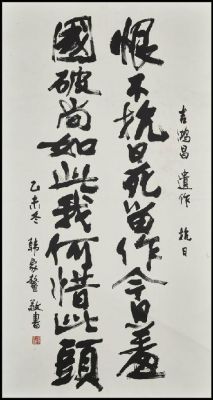 恨不抗日死留作今日羞
國破尚如此我何惜此頭
吉鴻昌 遺作 抗日
乙未冬 韩家鳌 敬書